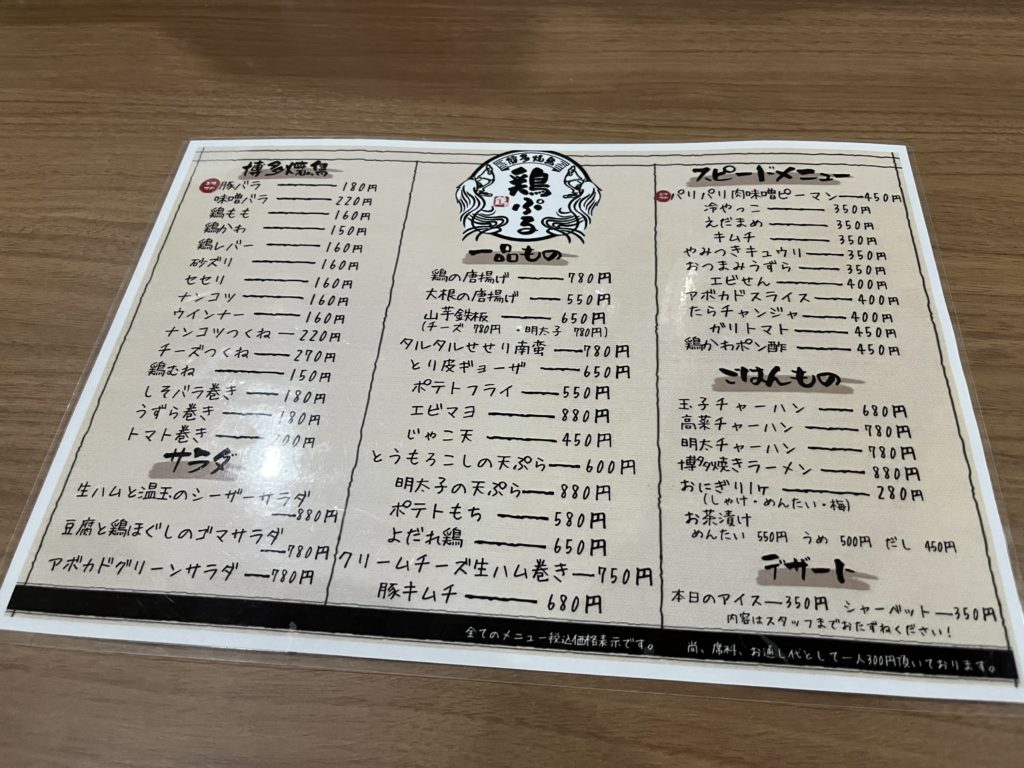 博多焼鳥
豚バラ 180円
味噌バラ 220円
鶏もも 160円
鶏かわ 150円
鶏レバー 160円
砂ズリ 160円
セセリ 160円
ナンコツ 160円
ウインナー 160円
ナンコツつくね 220円
チーズつくね 270円
鶏むね 150円
しそバラ巻き 180円
うずら巻き 180円
トマト巻き 200円
サラダ
生ハムと温玉のシーザーサラダ
880円
豆腐と鶏ほぐしのゴマサラダ
780円
アボカドグリーンサラダ 780円
博多焼鳥
鶏ぷる
一品もの
鶏の唐揚げ 780円
大根の唐揚げ 550円
山芋鉄板 650円
(チーズ 780円 ・明太子 780円)
タルタルせせり南蛮 780円
とり皮ギョーザ 650円
ポテトフライ 550円
エビマヨ 880円
じゃこ天 450円
とうもろこしの天ぷら 600円
明太子の天ぷら 880円
ポテトもち 580円
よだれ鶏 650円
クリームチーズ生ハム巻き 750円
豚キムチ 680円
スピードメニュー
パリパリ肉味噌ピーマン 450円
冷やっこ 350円
えだまめ 350円
キムチ 350円
やみつきキュウリ 350円
おつまみうずら 350円
エビせん 400円
アボカドスライス 400円
たらチャンジャ 400円
ガリトマト 450円
鶏かわポン酢 450円
ごはんもの
玉子チャーハン 680円
高菜チャーハン 780円
明太チャーハン 780円
博多焼きラーメン 880円
おにぎり1ヶ 280円
(しゃけ・めんたい・梅)
お茶漬け
めんたい 550円 うめ 500円 だし 450円
デザート
本日のアイス 350円 シャーベット 350円
内容はスタッフまでおたずねください!
全てのメニュー税込価格表示です。 尚、席料、お通し代として一人300円頂いております。